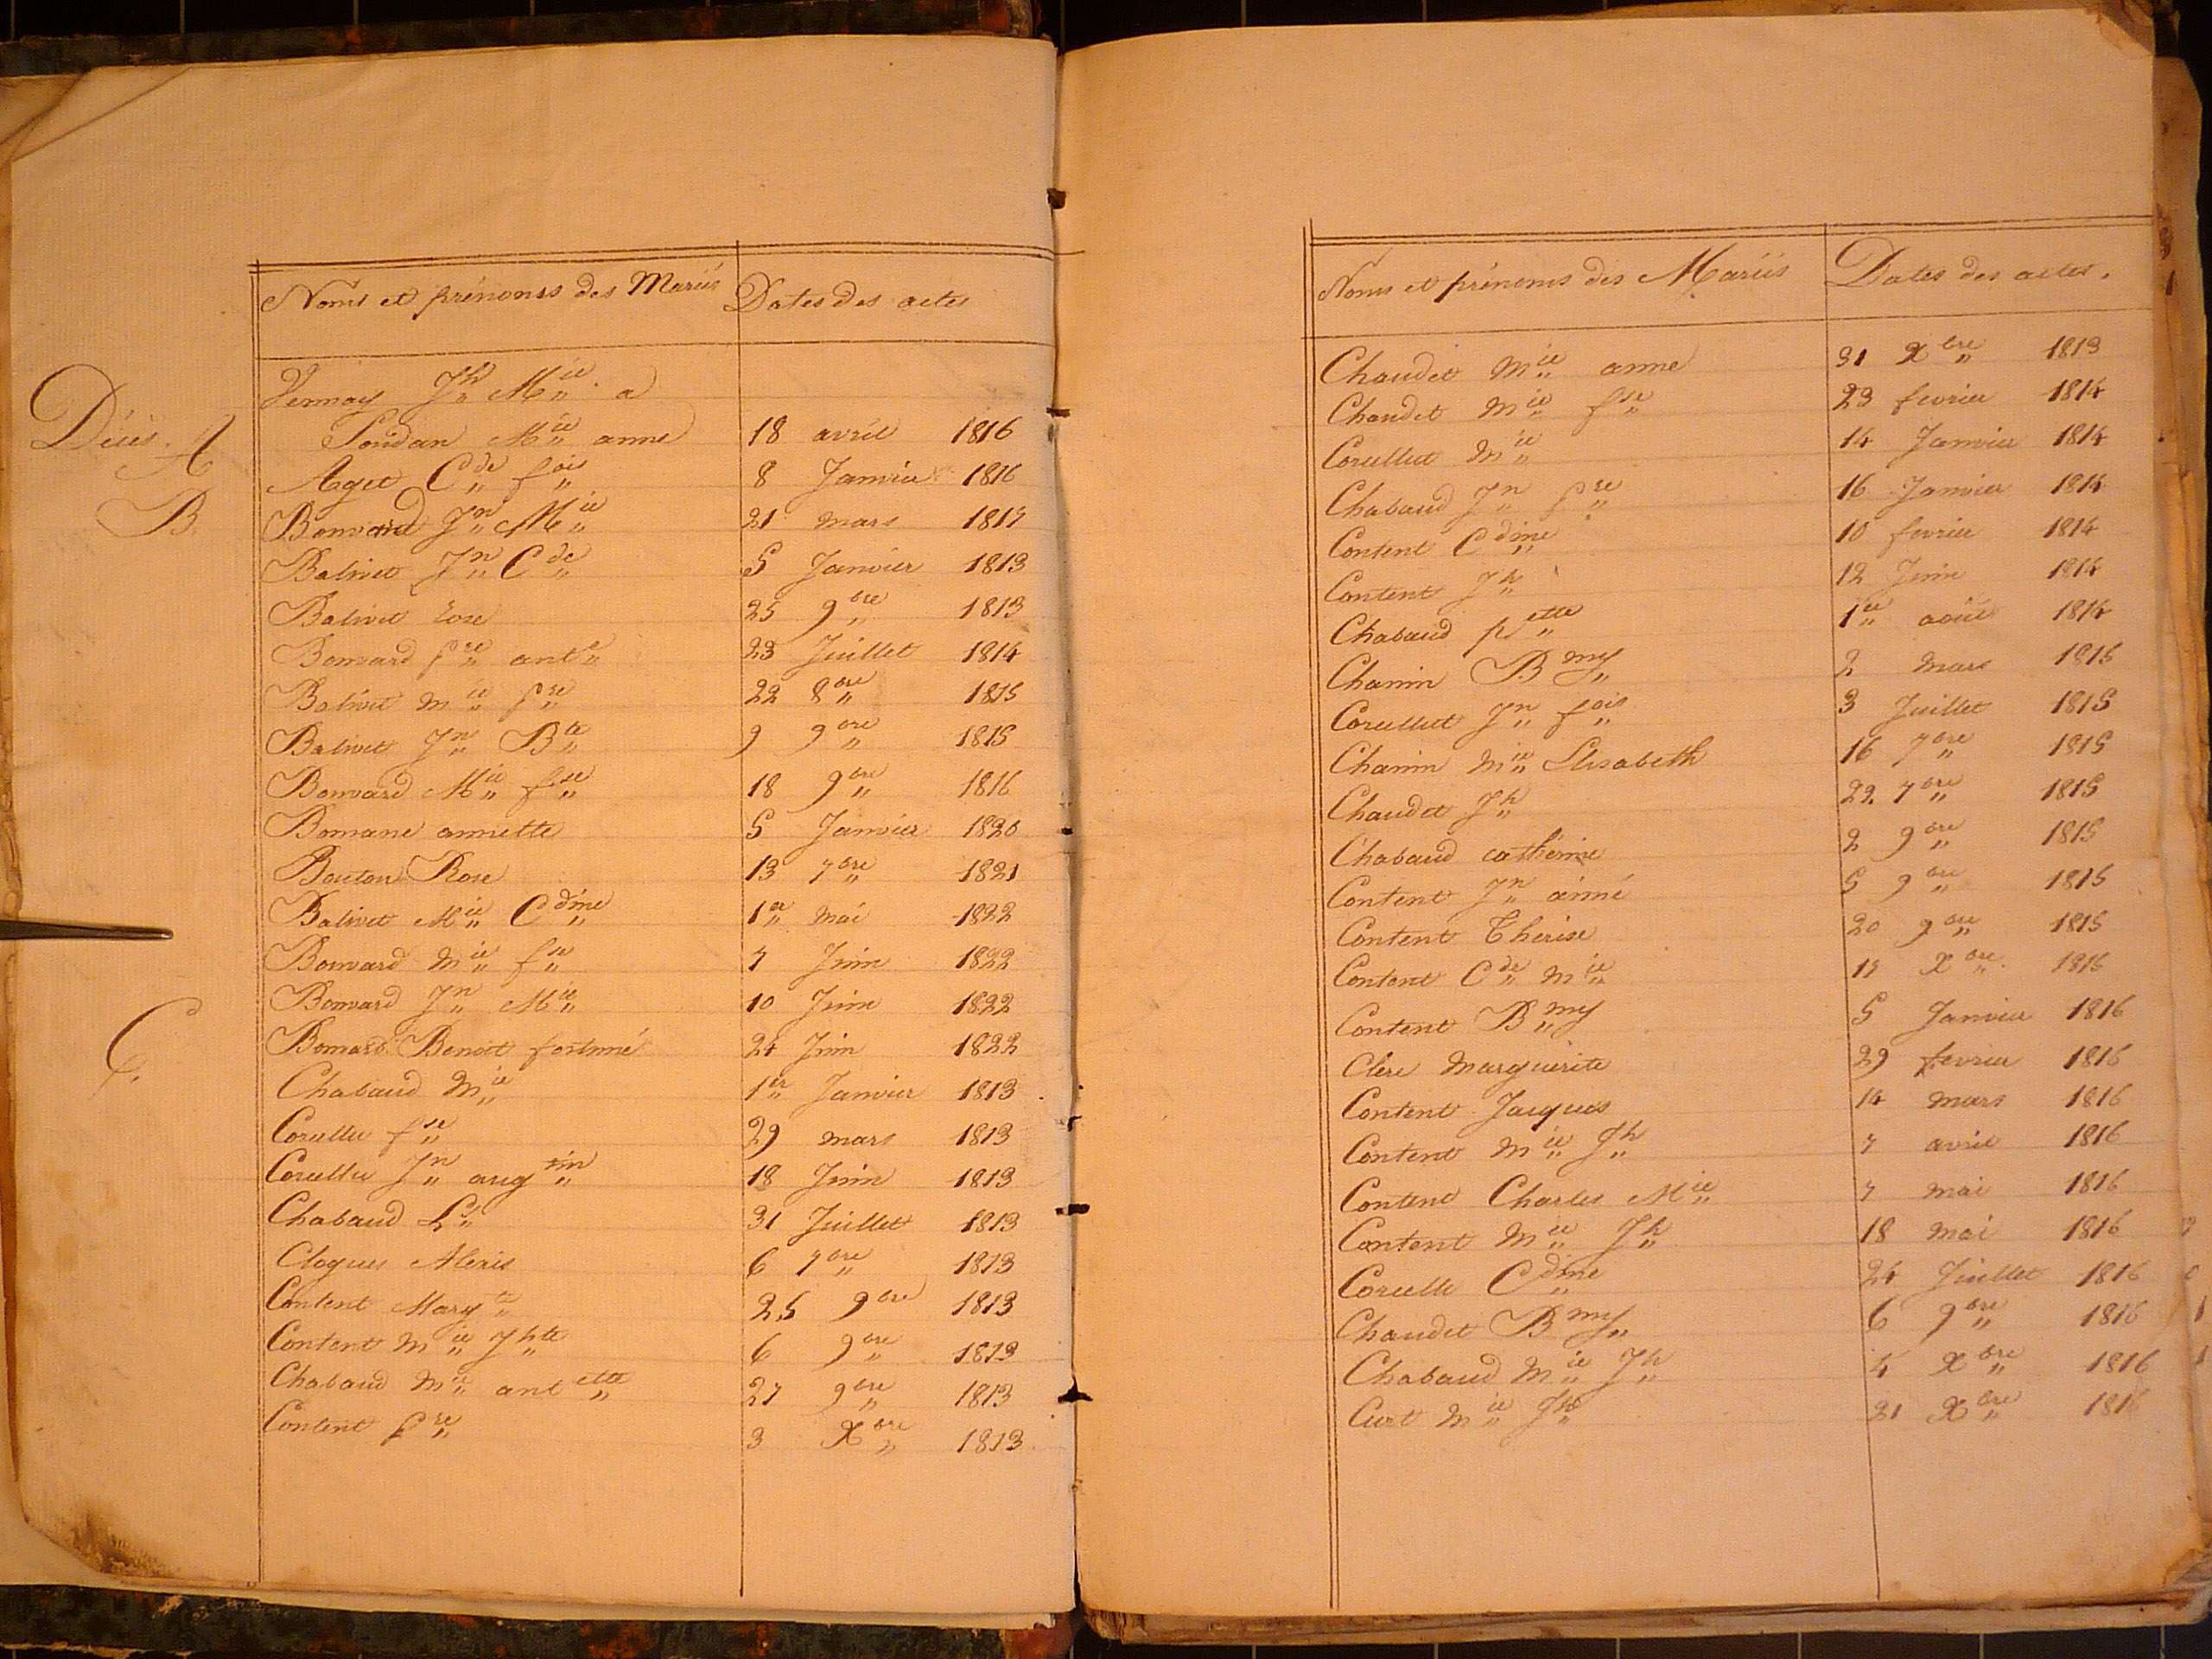 Noms et prénoms des Mariés Dates des actes
Vernay Jh Mie a
Décès. A
Soudan Mie anne 18 avril 1816
Aget Cde fois 8 Janvier 1816
B. Bonvard Jn Mie 21 mars 1815
Balivet Jn Cde 5 Janvier 1813
Balivet rose 25 9bre 1813
Bonvard pre ante 23 Juillet 1814
Balivet mie pre 22 8bre 1815
Balivet Jn Bte 9 9bre 1815
Bonvard Mie fse 18 9bre 1816
Bomane annette 5 Janvier 1820
Bouton Rose 13 7bre 1821
Balivet Mie Cdine 1er mai 1822
Bonvard mie fse 7 Juin 1822
Bonvard Jn Mie 10 Juin 1822
Bonvard Benoit fortuné 24 Juin 1822
C. Chabaud mie 1er Janvier 1813
Corcellu fse 29 mars 1813
Corcellu Jn augtin 18 Juin 1813
Chabaud Ls 31 Juillet 1813
Clogues Alexis 6 7bre 1813
Content Margte 25 9bre 1813
Content mie Jhte 6 9bre 1813
Chabaud mie antette 27 9bre 1813
Content pre 3 Xbre 1813
Noms et prénoms des Mariés Dates des actes.
Chaudet mie anne 31 Xbre 1813
Chaudet mie fse 23 fevrier 1814
Corcellut mie 14 Janvier 1814
Chabaud Jn pre 16 Janvier 1814
Content Cdine 10 fevrier 1814
Content Jh 12 Juin 1814
Chabaud pette 1er août 1814
Chanin Bmy 2 mars 1815
Corcellut Jn fois 3 Juillet 1815
Chanin mie Elisabeth 16 7bre 1815
Chaudet Jh 22. 7bre 1815
Chabaud catherine 2 9bre 1815
Content Jn aimé 5 9bre 1815
Content Thérise 20 9bre 1815
Content Cde mie 15 Xbre 1815
Content Bmy 5 Janvier 1816
Clere marguerite 29 fevrier 1816
Content Jacques 14 mars 1816
Content mie Jh 7 avril 1816
Content Charles Mie 7 mai 1816
Content mie Jh 18 mai 1816
Corcelle Cdine 24 Juillet 1816
Chaudet Bmy 6 9bre 1816
Chabaud mie Jh 4 Xbre 1816
Curt mie Jh 21 Xbre 1816